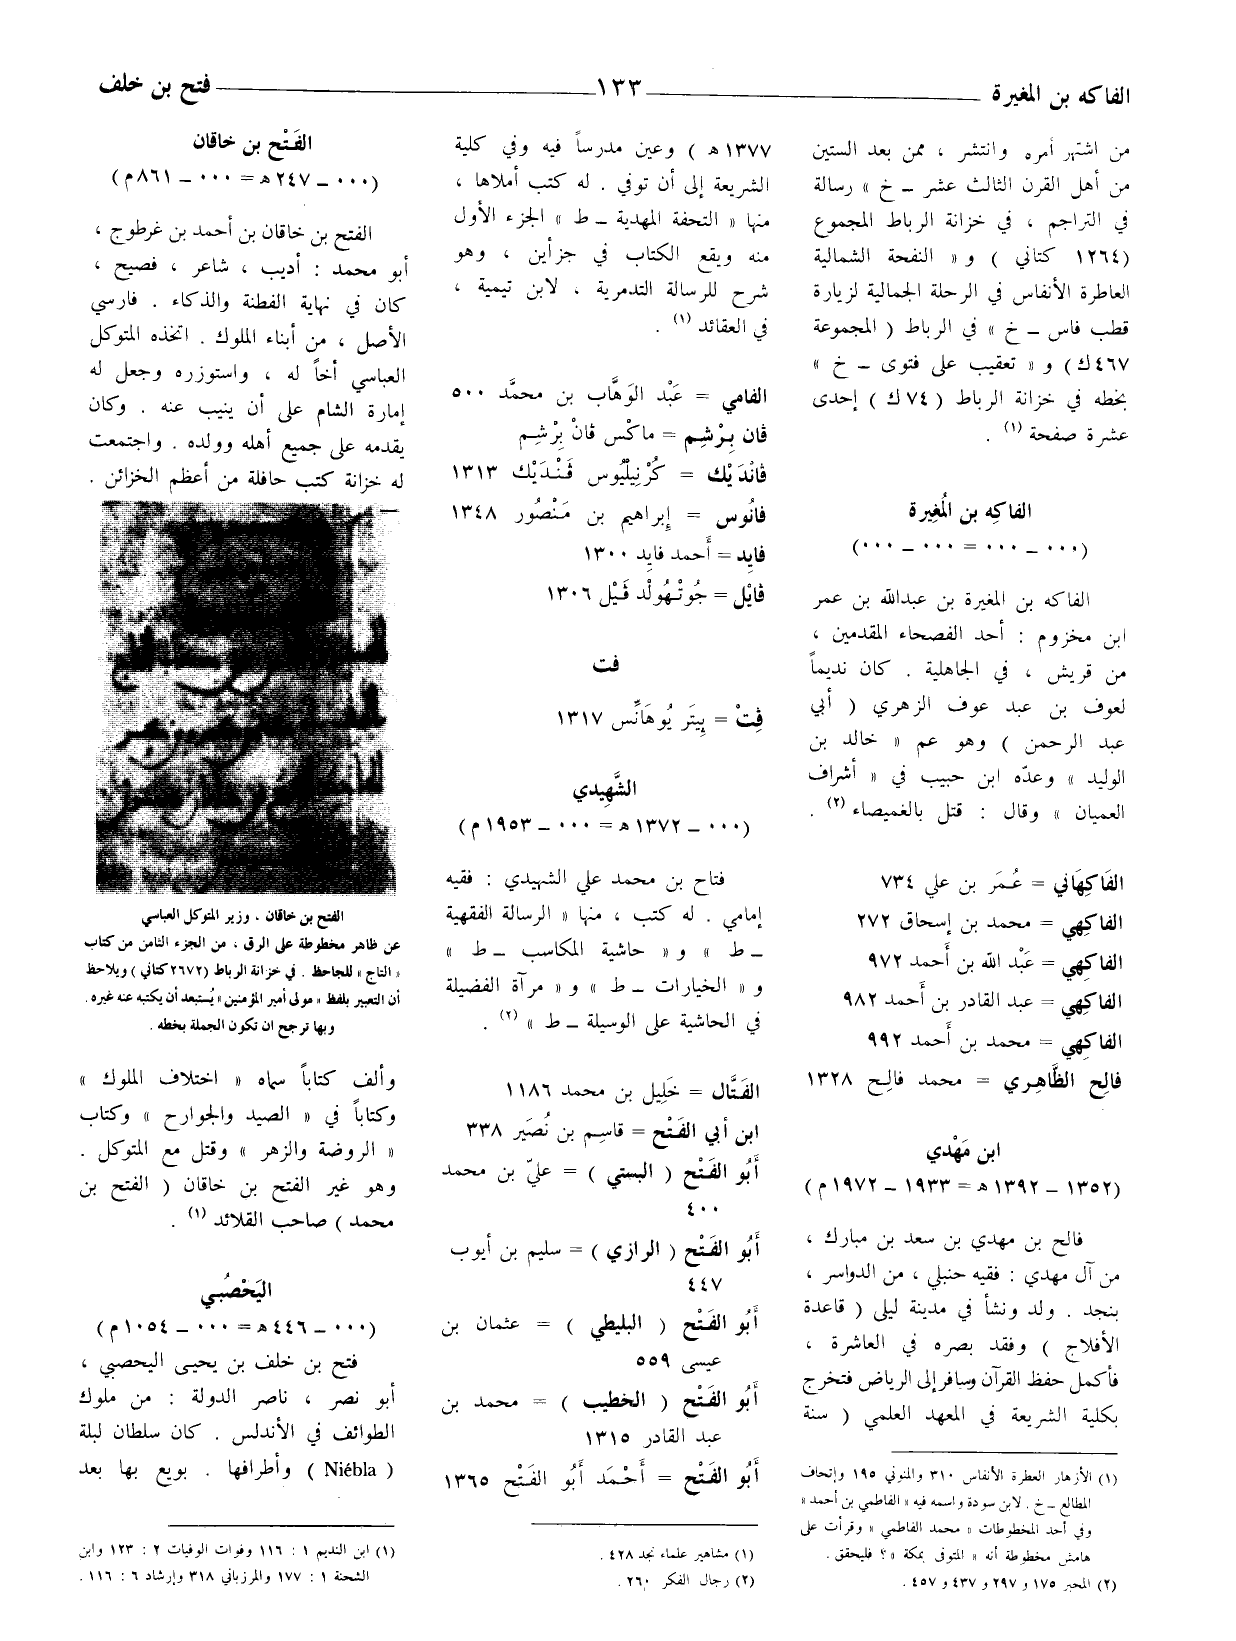 الفاكه بن المغيرة
١٣٣
فتح بن خلف
من اشتهر أمره وانتشر ، ممن بعد الستين
من أهل القرن الثالث عشر ــ خ » رسالة
في التراجم ، في خزانة الرباط المجموع
(١٢٦٤ كتاني ) و « النفحة الشمالية
العاطرة الأنفاس في الرحلة الجمالية لزيارة
قطب فاس ــ خ » في الرباط ( المجموعة
٤٦٧ك) و « تعقيب على فتوى ــ خ »
بخطه في خزانة الرباط ( ٧٤ك ) إحدى
عشرة صفحة (١) .
الفاكِه بن المُغِيرة
(٠٠٠ ــ ٠٠٠ = ٠٠٠ ــ ٠٠٠)
الفاكه بن المغيرة بن عبدالله بن عمر
ابن مخزوم : أحد الفصحاء المقدمين ،
من قريش ، في الجاهلية . كان نديماً
لعوف بن عبد عوف الزهري ( أبي
عبد الرحمن ) وهو عم « خالد بن
الوليد » وعدّه ابن حبيب في « أشراف
العميان » وقال : قتل بالغميصاء (٢) .
الفَاكِهَاني = عُمَر بن علي ٧٣٤
الفاكِهي = محمد بن إسحاق ٢٧٢
الفاكِهي = عَبْد الله بن أَحمد ٩٧٢
الفاكِهي = عبد القادر بن أَحمد ٩٨٢
الفاكِهي = محمد بن أَحمد ٩٩٢
فالِح الظَّاهِري = محمد فالِح ١٣٢٨
ابن مَهْدي
(١٣٥٢ ــ ١٣٩٢ ه = ١٩٣٣ ــ ١٩٧٢ م )
فالح بن مهدي بن سعد بن مبارك ،
من آل مهدي : فقيه حنبلي ، من الدواسر ،
بنجد . ولد ونشأ في مدينة ليلى ( قاعدة
الأفلاج ) وفقد بصره في العاشرة ،
فأكمل حفظ القرآن وسافر إلى الرياض فتخرج
بكلية الشريعة في المعهد العلمي ( سنة
(١) الأزهار العطرة الأنفاس ٣١٠ والمنوني ١٩٥ وإتحاف
المطالع ــ خ . لابن سودة واسمه فيه « الفاطمي بن أحمد »
وفي أحد المخطوطات « محمد الفاطمي » وقرأت على
هامش مخطوطة أنه « المتوفى بمكة » ؟ فليحقق .
(٢) المحبر ١٧٥ و ٢٩٧ و ٤٣٧ و ٤٥٧ .
١٣٧٧ ه ) وعين مدرساً فيه وفي كلية
الشريعة إلى أن توفي . له كتب أملاها ،
منها « التحفة المهدية ــ ط » الجزء الأول
منه ويقع الكتاب في جزأين ، وهو
شرح للرسالة التدمرية ، لابن تيمية ،
في العقائد (١) .
الفامي = عَبْد الوَهَّاب بن محمَّد ٥٠٠
ڤان بِرْشِم = ماكْس ڤانْ بِرْشِم
ڤانْدَيْك = كُرْنِيْلِيُوس ڤَنْدَيْك ١٣١٣
فانُوس = إبراهيم بن مَنْصُور ١٣٤٨
فايِد = أَحمد فايِد ١٣٠٠
ڤايْل = جُوتْهُولْد ڤَيْل ١٣٠٦
فت
فِتْ = بِيتَر يُوهَانِّس ١٣١٧
الشَّهِيدي
(٠٠٠ ــ ١٣٧٢ ه = ٠٠٠ ــ ١٩٥٣ م )
فتاح بن محمد علي الشهيدي : فقيه
إمامي . له كتب ، منها « الرسالة الفقهية
ــ ط » و « حاشية المكاسب ــ ط »
و « الخيارات ــ ط » و « مرآة الفضيلة
في الحاشية على الوسيلة ــ ط » (٢) .
الفَتَّال = خَلِيل بن محمد ١١٨٦
ابن أبي الفَتْح = قاسِم بن نُصَير ٣٣٨
أَبُو الفَتْح ( البستي ) = عليّ بن محمد
٤٠٠
أَبُو الفَتْح ( الرازي ) = سليم بن أيوب
٤٤٧
أَبُو الفَتْح ( البليطي ) = عثمان بن
عيسى ٥٥٩
أَبُو الفَتْح ( الخطيب ) = محمد بن
عبد القادر ١٣١٥
أَبُو الفَتْح = أَحْمَد أَبُو الفَتْح ١٣٦٥
(١) مشاهير علماء نجد ٤٢٨ .
(٢) رجال الفكر ٢٦٠ .
الفَتْح بن خاقان
(٠٠٠ ــ ٢٤٧ ه = ٠٠٠ ــ ٨٦١ م )
الفتح بن خاقان بن أحمد بن غرطوج ،
أبو محمد : أديب ، شاعر ، فصيح ،
كان في نهاية الفطنة والذكاء . فارسي
الأصل ، من أبناء الملوك . اتخذه المتوكل
العباسي أخاً له ، واستوزره وجعل له
إمارة الشام على أن ينيب عنه . وكان
يقدمه على جميع أهله وولده . واجتمعت
له خزانة كتب حافلة من أعظم الخزائن .
الفتح بن خاقان ، وزير المتوكل العباسي
عن ظاهر مخطوطة على الرق ، من الجزء الثامن من كتاب
« التاج » للجاحظ . في خزانة الرباط (٢٦٧٢ كتاني ) ويلاحظ
أن التعبير بلفظ « مولى أمير المؤمنين » يُستبعد أن يكتبه عنه غيره .
وبها ترجح ان تكون الجملة بخطه .
وألف كتاباً سماه « اختلاف الملوك »
وكتاباً في « الصيد والجوارح » وكتاب
« الروضة والزهر » وقتل مع المتوكل .
وهو غير الفتح بن خاقان ( الفتح بن
محمد ) صاحب القلائد (١) .
اليَحْصُبي
(٠٠٠ ــ ٤٤٦ ه = ٠٠٠ ــ ١٠٥٤ م )
فتح بن خلف بن يحيى اليحصبي ،
أبو نصر ، ناصر الدولة : من ملوك
الطوائف في الأندلس . كان سلطان لبلة
( Niébla ) وأطرافها . بويع بها بعد
(١) ابن النديم ١ : ١١٦ وفوات الوفيات ٢ : ١٢٣ وابن
الشحنة ١ : ١٧٧ والمرزباني ٣١٨ وإرشاد ٦ : ١١٦ .